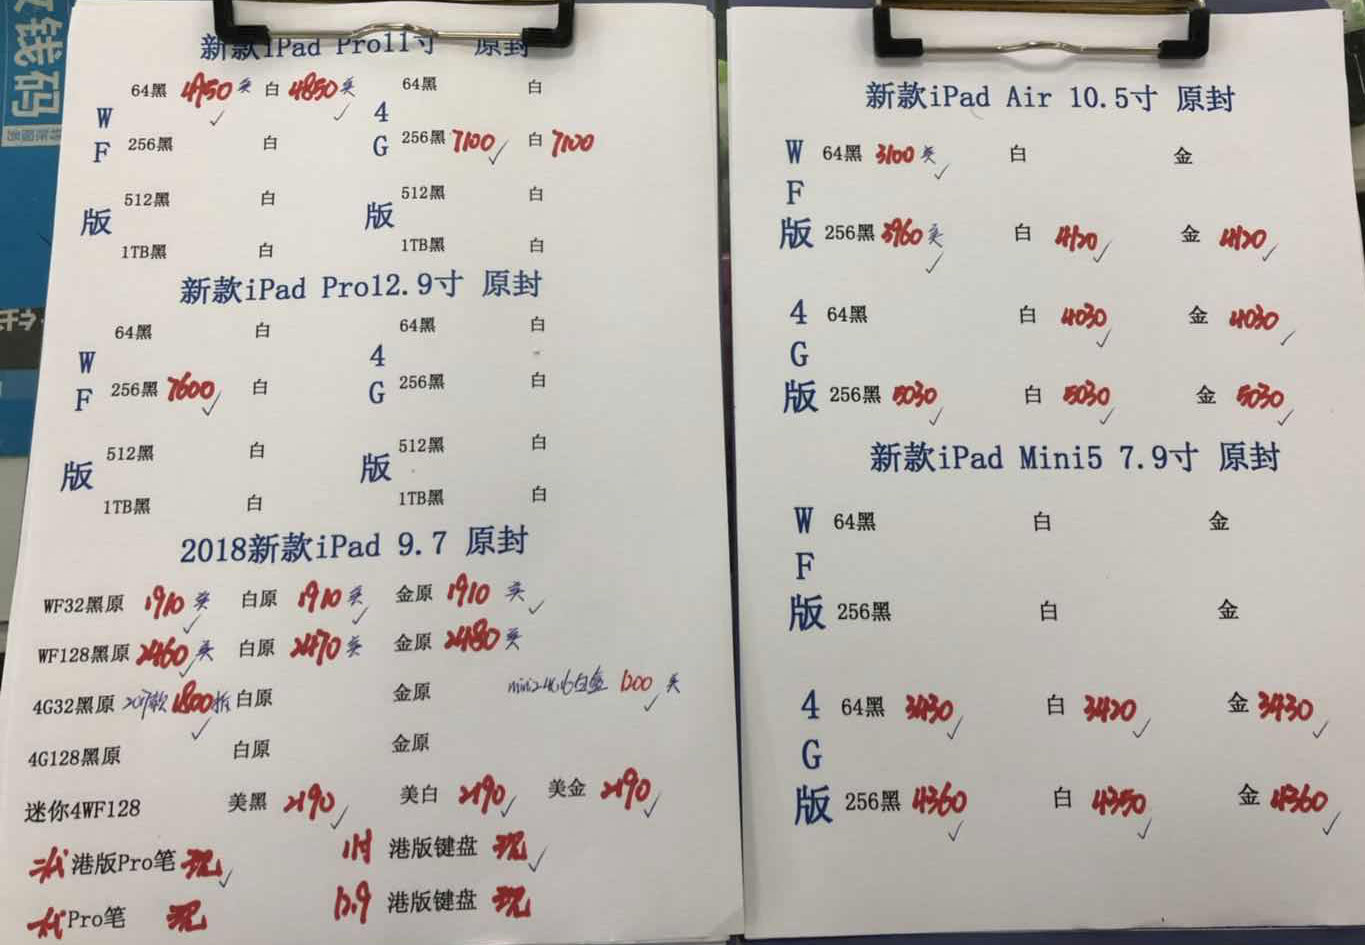 钱码
新款iPad Pro11寸 原封
WF版 4G版
64黑 4950 美 白 4850 美 64黑 白
256黑 白 256黑 7100 白 7100
512黑 白 512黑 白
1TB黑 白 1TB黑 白
新款iPad Pro12.9寸 原封
WF版 4G版
64黑 白 64黑 白
256黑 7600 白 256黑 白
512黑 白 512黑 白
1TB黑 白 1TB黑 白
2018新款iPad 9.7 原封
WF32黑原 1910 美 白原 1910 美 金原 1910 美
WF128黑原 2460 美 白原 2470 美 金原 2480 美
4G32黑原 2017款 1800 拆 白原 金原 mini2 4G 16 白 1200 美
4G128黑原 白原 金原
迷你4WF128 美黑 2190 美白 2190 美金 2190
二代 港版Pro笔 现 11寸 港版键盘 现
一代 Pro笔 现 12.9 港版键盘 现
新款iPad Air 10.5寸 原封
WF版
64黑 3100 美 白 金
256黑 3960 美 白 4120 金 4120
4G版
64黑 白 4030 金 4030
256黑 5030 白 5030 金 5030
新款iPad Mini5 7.9寸 原封
WF版
64黑 白 金
256黑 白 金
4G版
64黑 3430 白 3420 金 3430
256黑 4360 白 4350 金 4360